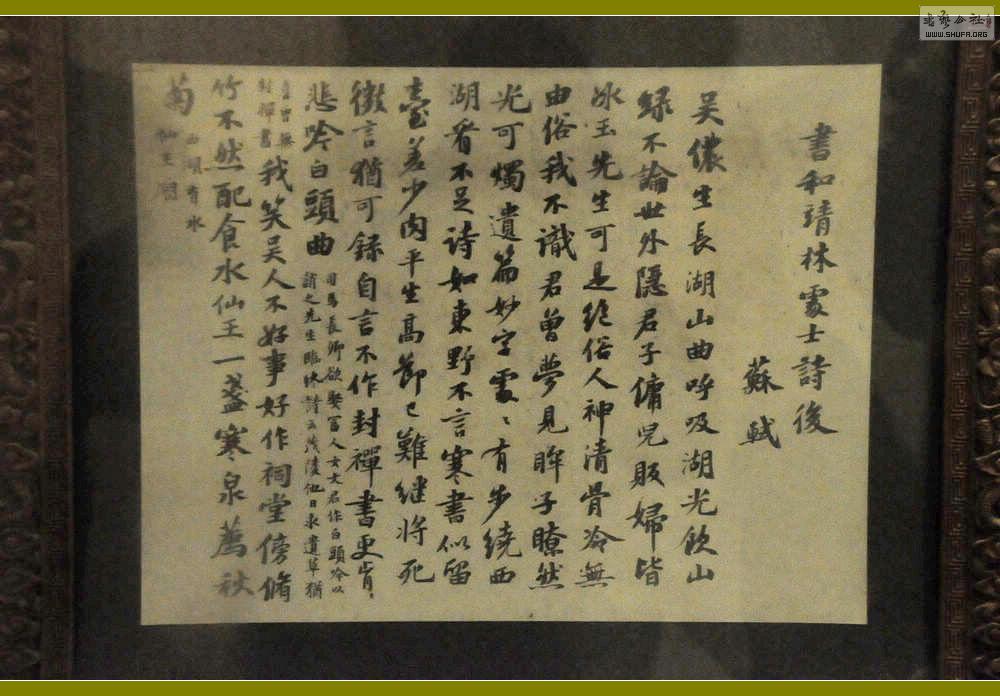 書和靖林處士詩後
蘇軾
吴儂生長湖山曲呼吸湖光飲山
緑不論世外隱君子傭兒販婦皆
冰玉先生可是絶俗人神清骨冷無
由俗我不識君曾夢見眸子瞭然
光可燭遺篇妙字處〻有步繞西
湖看不足詩如東野不言寒書似留
臺差少肉平生高節已難繼將死
微言猶可録自言不作封禪書更肯
悲吟白頭曲
司馬長卿欲娶富人女文君作白頭吟以
誚之先生臨休詩云茂陵他日求遺草猶
喜曾無
封禪書
我笑吴人不好事好作祠堂傍脩
竹不然配食水仙王一盞寒泉薦秋
菊
西湖有水
仙王廟
書藝公社
WWW.SHUFA.ORG